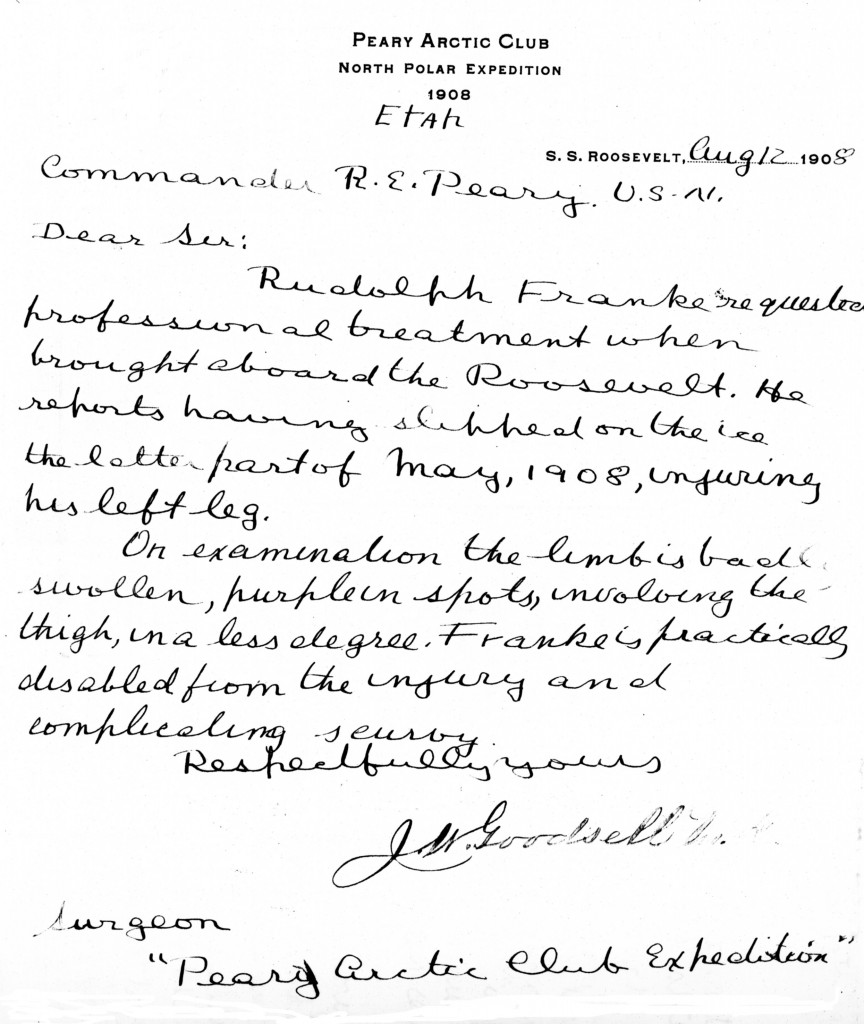 PEARY ARCTIC CLUB
NORTH POLAR EXPEDITION
1908
Etah
S. S. ROOSEVELT, Aug 12 1908
Commander R. E. Peary. U.S.N.
Dear Sir:
Rudolph Franke requested
professional treatment when
brought aboard the Roosevelt. He
reports having slipped on the ice
the latter part of May, 1908, injuring
his left leg.
On examination the limb is badl
swollen, purple in spots, involving the
thigh, in a less degree. Franke is practically
disabled from the injury and
complicating scurvy.
Respectfully yours
J. W. Goodsell M.
Surgeon
"Peary Arctic Club Expedition"